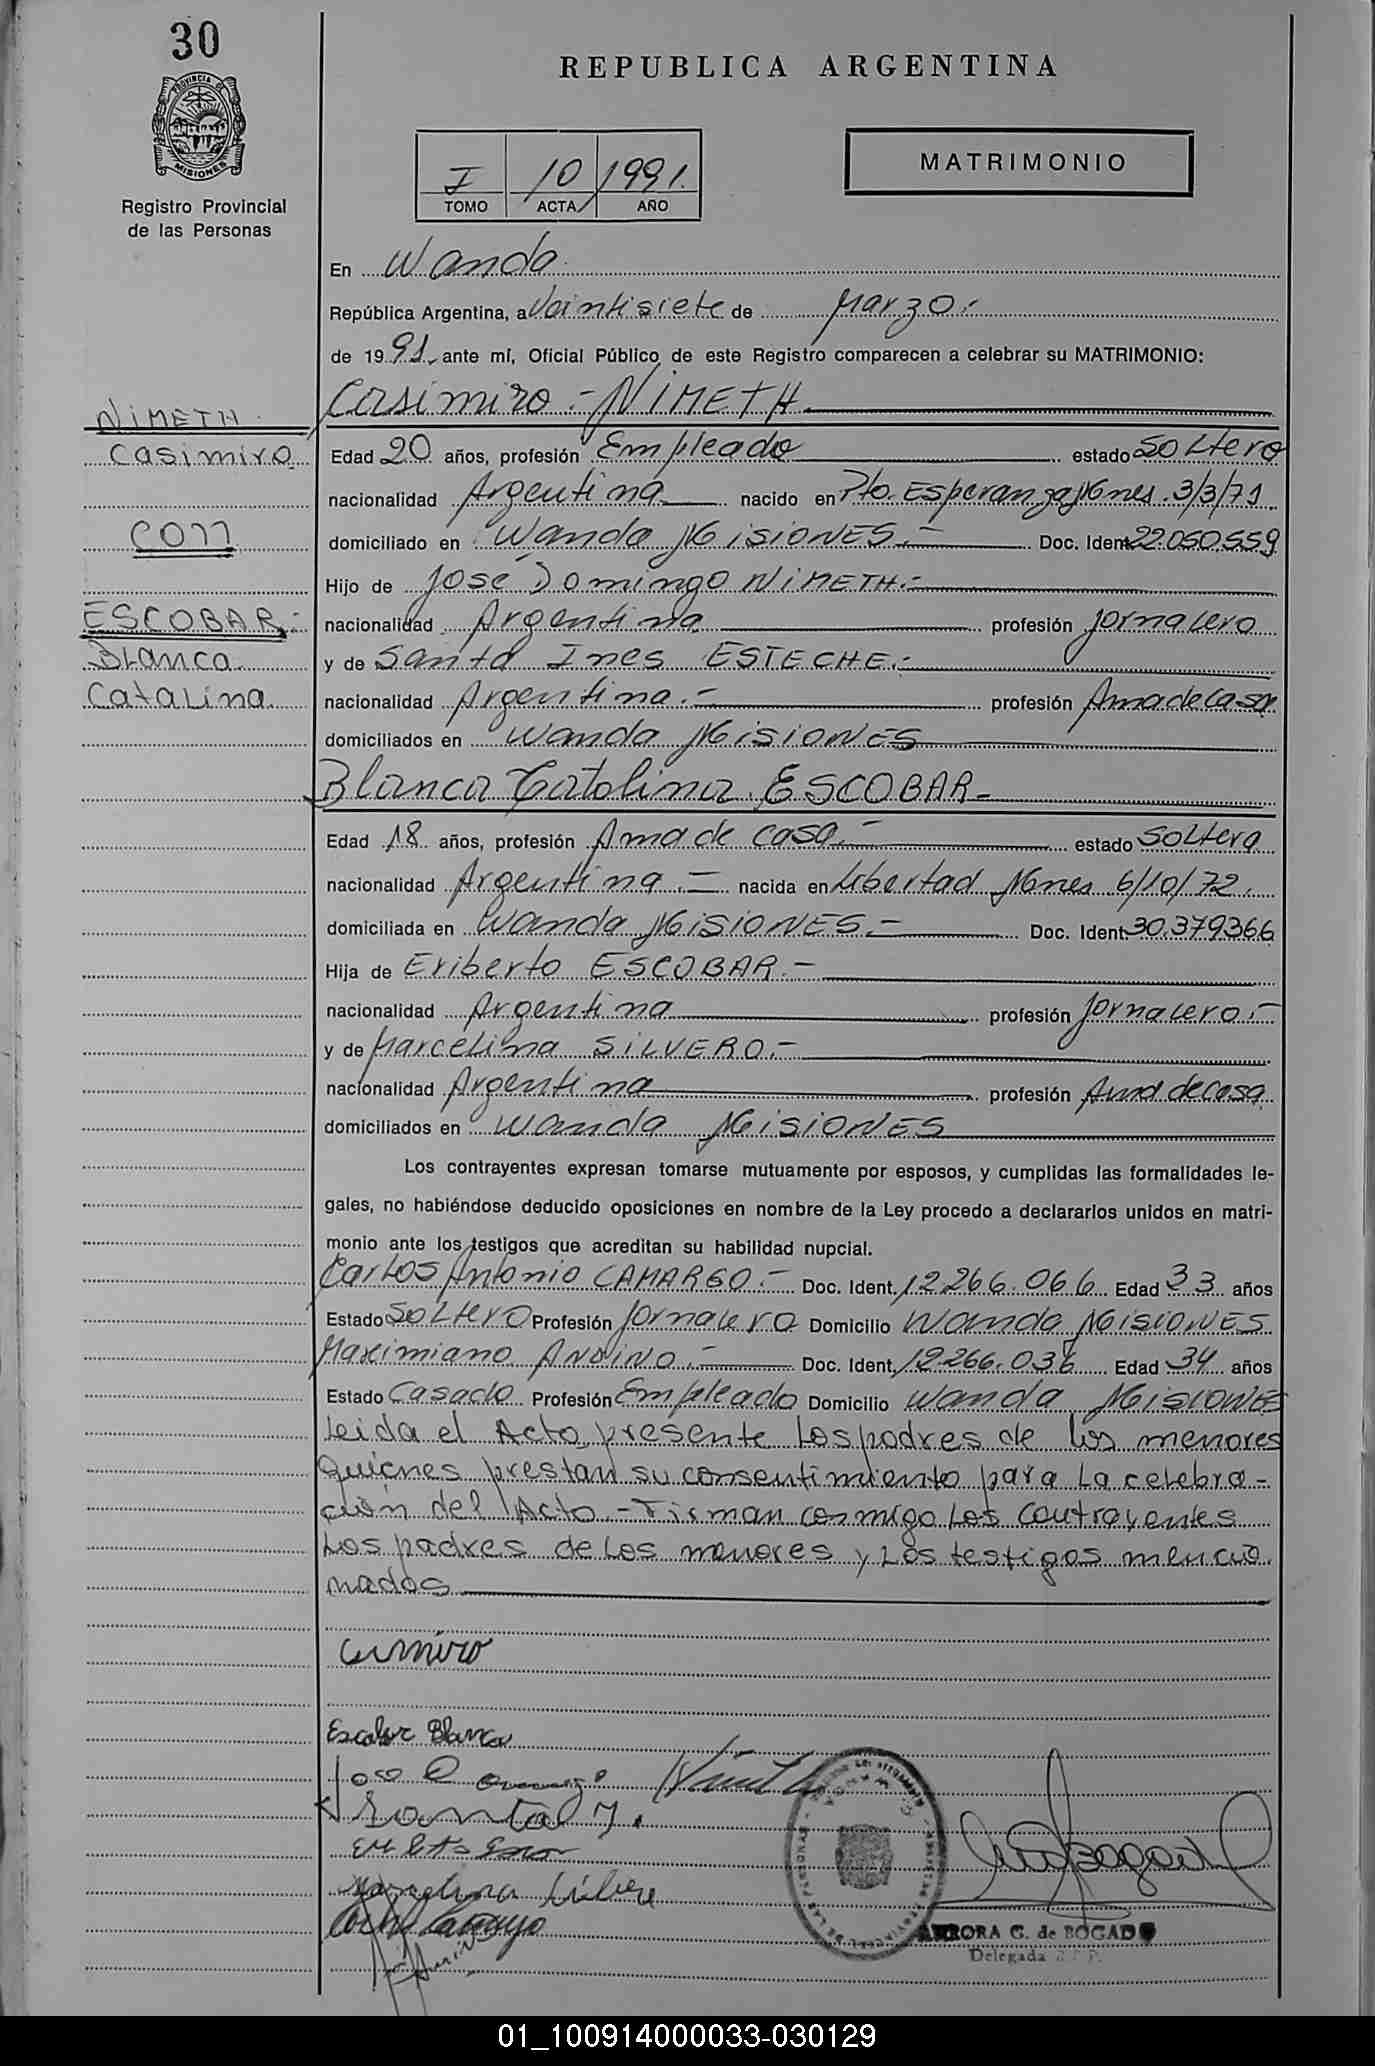 30
REPUBLICA ARGENTINA
PROVINCIA DE
MISIONES
Registro Provincial
de las Personas
I 10 1991.
TOMO ACTA AÑO
MATRIMONIO
En Wanda
República Argentina, a Veintisiete de Marzo.-
de 1991 ante mí, Oficial Público de este Registro comparecen a celebrar su MATRIMONIO:
Casimiro.- NIMETH
NIMETH
Casimiro
con
ESCOBAR.-
Blanca
Catalina
Edad 20 años, profesión Empleado estado Soltero
nacionalidad Argentina nacido en Pto. Esperanza Mnes. 3/3/71
domiciliado en Wanda MisioNES.- Doc. Ident 22.050.559
Hijo de José Domingo NIMETH.-
nacionalidad Argentina profesión Jornalero
y de Santa Ines ESTECHE.-
nacionalidad Argentina.- profesión Ama de casa
domiciliados en Wanda MisioNES
Blanca Catalina ESCOBAR-
Edad 18 años, profesión Ama de casa.- estado Soltera
nacionalidad Argentina.- nacida en Libertad Mnes 6/10/72.
domiciliada en Wanda MisioNES.- Doc. Ident. 30.379.366
Hija de Eriberto ESCOBAR.-
nacionalidad Argentina profesión Jornalero.-
y de Marcelina SILVERO.-
nacionalidad Argentina profesión Ama de casa
domiciliados en Wanda MisioNES
Los contrayentes expresan tomarse mutuamente por esposos, y cumplidas las formalidades le-
gales, no habiéndose deducido oposiciones en nombre de la Ley procedo a declararlos unidos en matri-
monio ante los testigos que acreditan su habilidad nupcial.
Carlos Antonio CAMARGO.- Doc. Ident. 12.266.066 Edad 33 años
Estado Soltero Profesión Jornalero Domicilio Wanda MisioNES
Maximiano ANDINO.- Doc. Ident. 12.266.036 Edad 34 años
Estado Casado Profesión Empleado Domicilio Wanda MisioNES
Leida el Acto, presente los padres de los menores
quienes prestan su consentimiento para la celebra-
ción del Acto.- Firman conmigo los contrayentes
Los padres de los menores y los testigos mencio
nados
Escobar Blanca
AURORA G. de BOGADO
Delegada
01_100914000033-030129